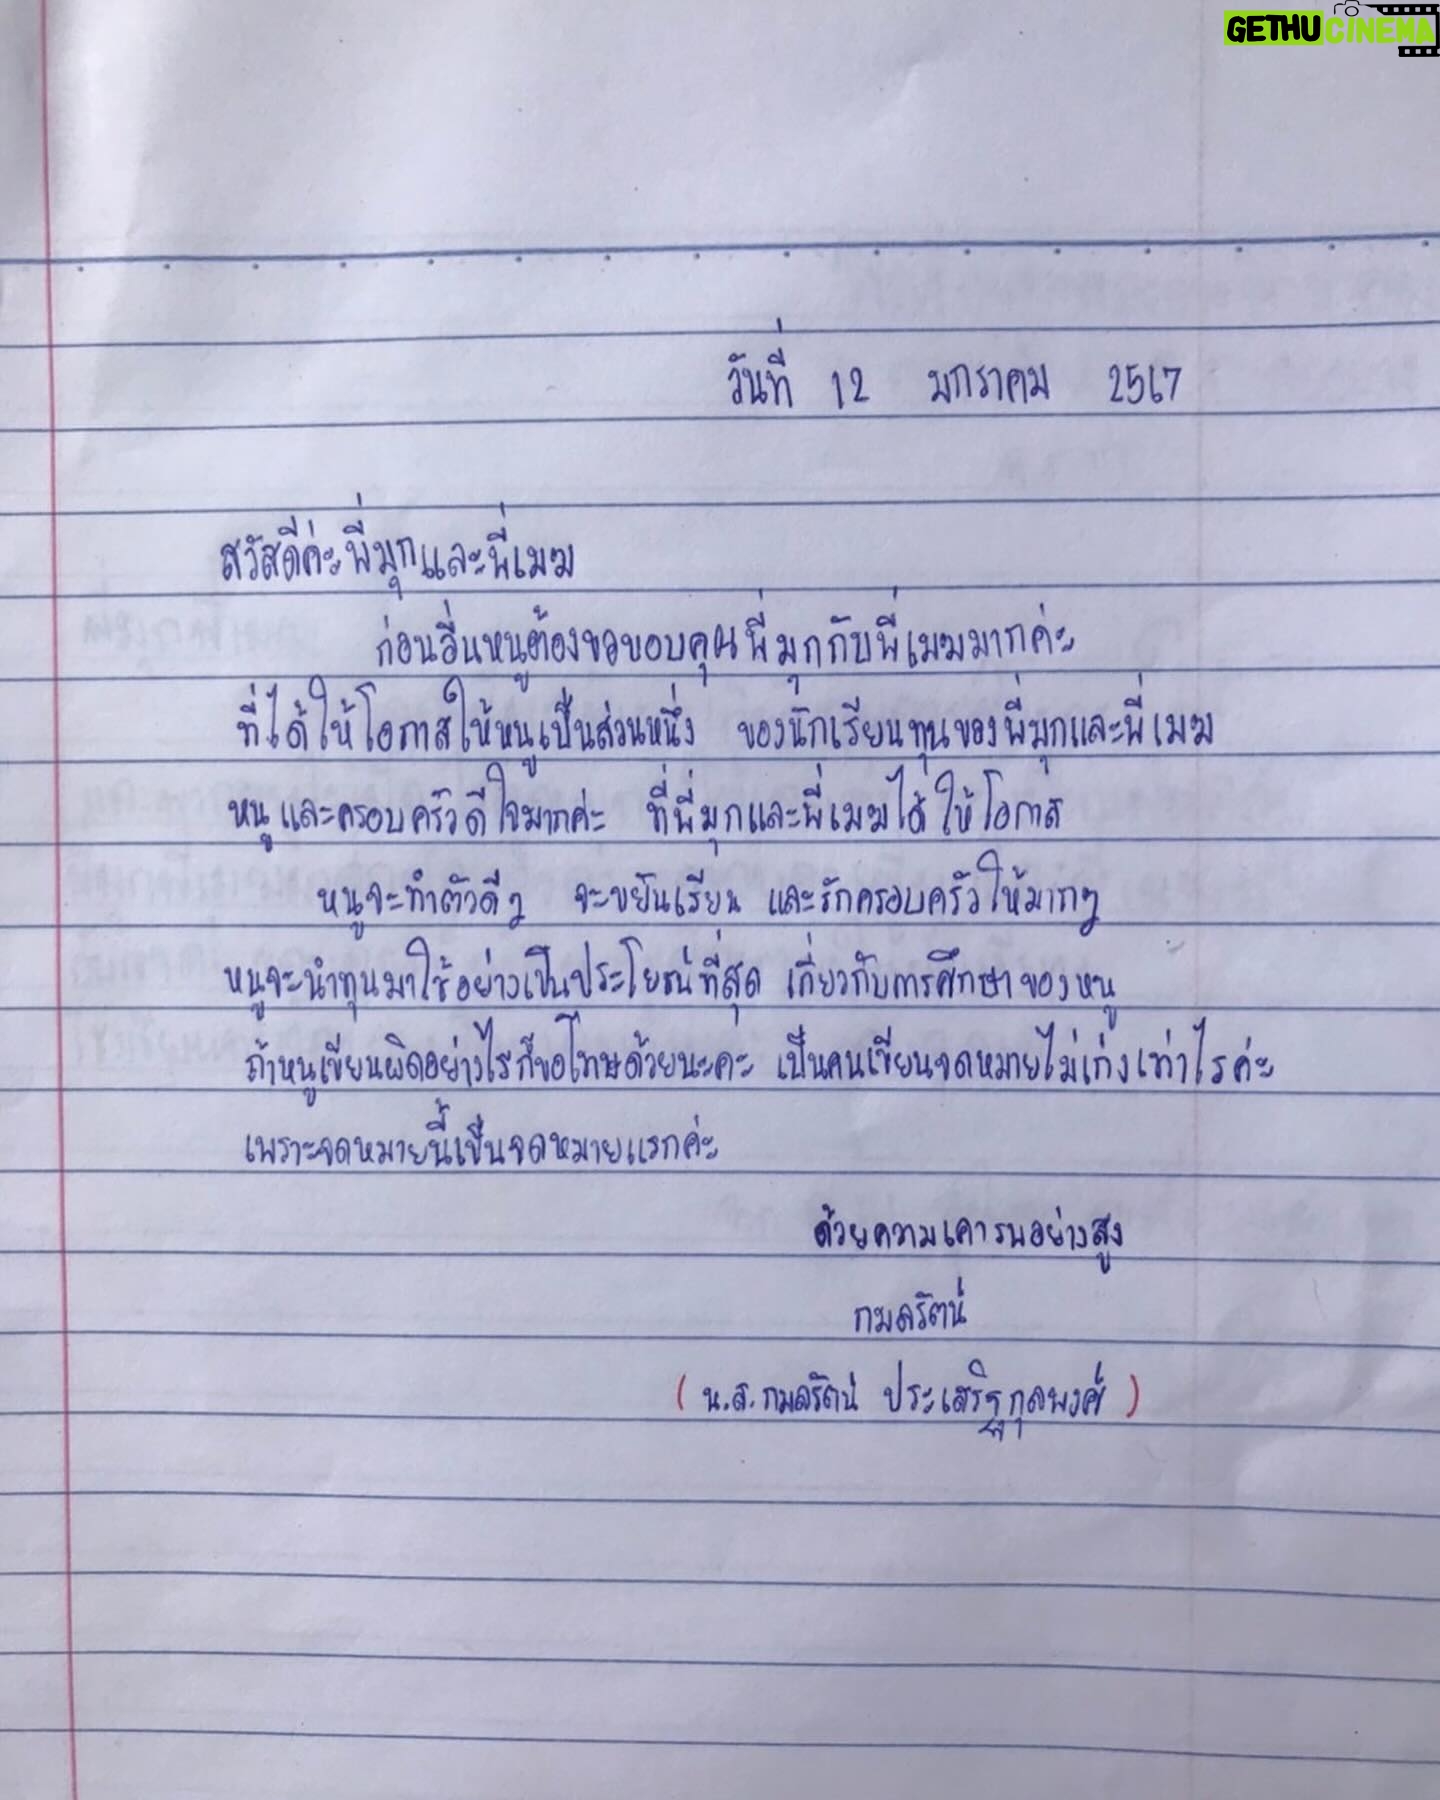 GETHUCINEMA
วันที่ 12 มกราคม 2567
สวัสดีค่ะพี่มุกและพี่เมฆ
ก่อนอื่นหนูต้องขอขอบคุณพี่มุกกับพี่เมฆมากค่ะ
ที่ได้ให้โอกาสให้หนูเป็นส่วนหนึ่ง ของนักเรียนทุนของพี่มุกและพี่เมฆ
หนูและครอบครัวดีใจมากค่ะ ที่พี่มุกและพี่เมฆได้ให้โอกาส
หนูจะทำตัวดีๆ จะขยันเรียน และรักครอบครัวให้มากๆ
หนูจะนำทุนมาใช้อย่างเป็นประโยชน์ที่สุด เกี่ยวกับการศึกษาของหนู
ถ้าหนูเขียนผิดอย่างไรก็ขอโทษด้วยนะคะ เป็นคนเขียนจดหมายไม่เก่งเท่าไรค่ะ
เพราะจดหมายนี้เป็นจดหมายแรกค่ะ
ด้วยความเคารพอย่างสูง
กมลรัตน์
( น.ส.กมลรัตน์ ประเสริฐกุลพงศ์ )